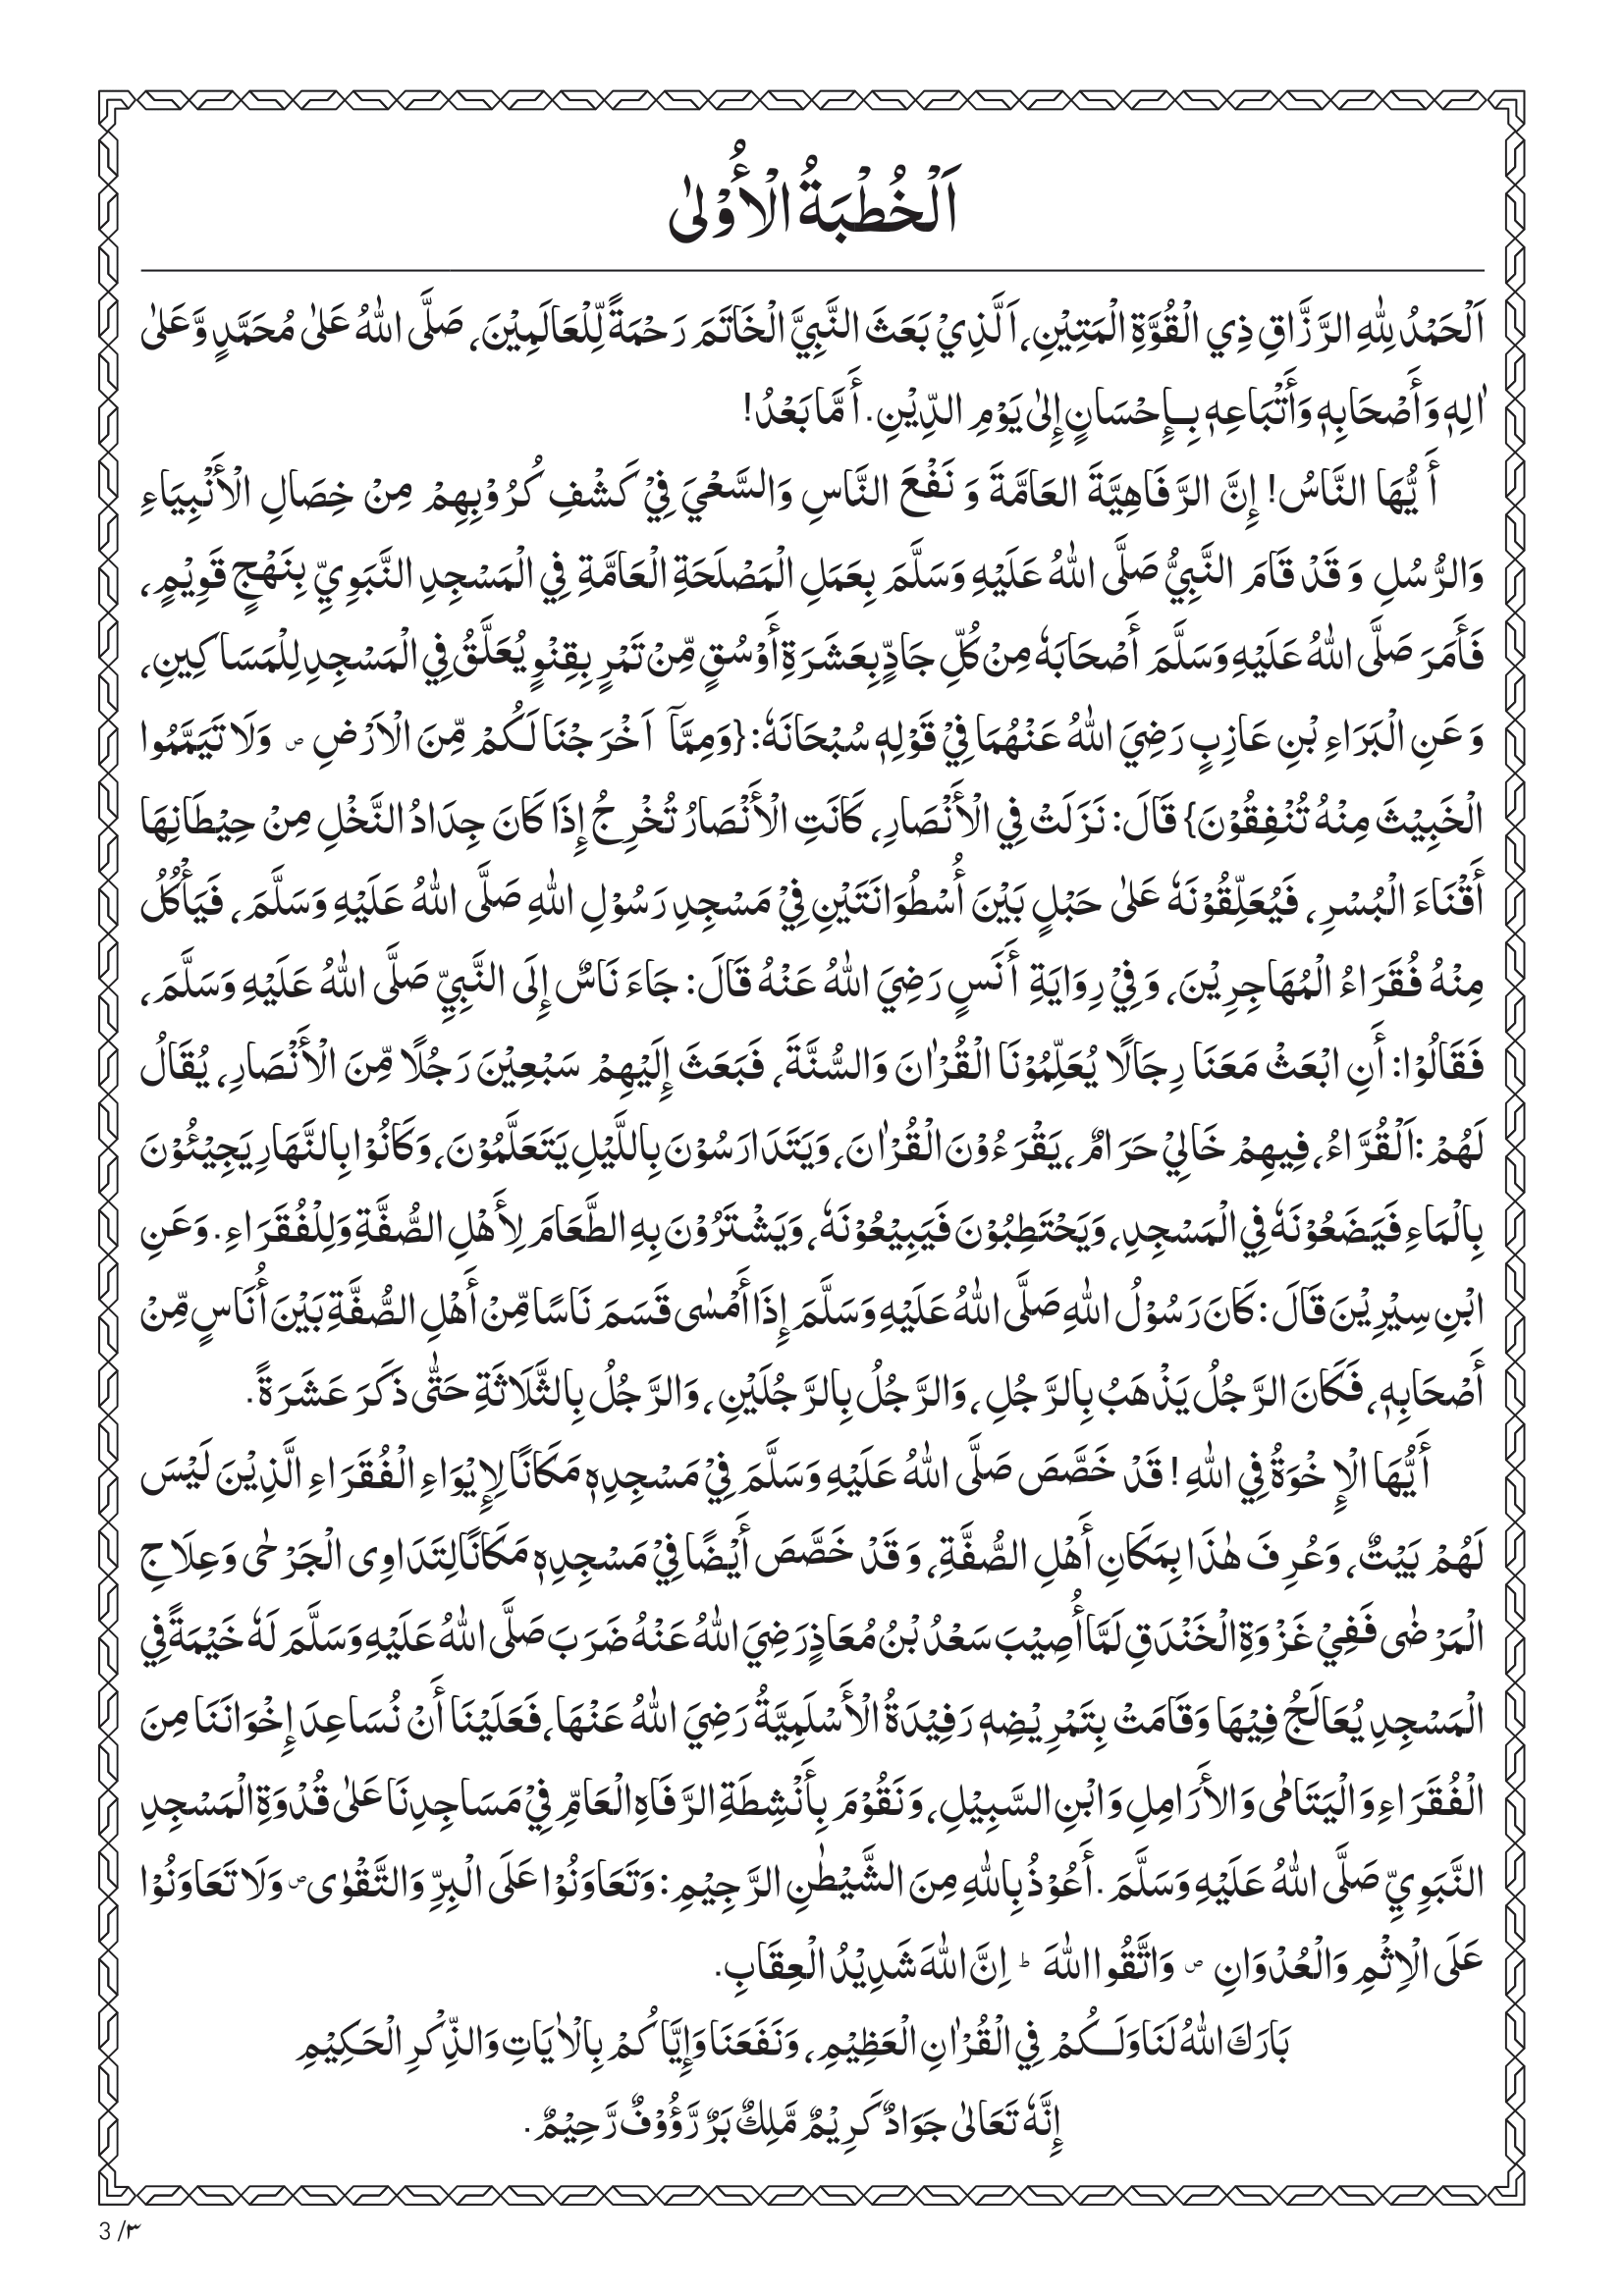 اَلْخُطْبَةُ الْأُوْلىٰ
اَلْحَمْدُ لِلّٰهِ الرَّزَّاقِ ذِي الْقُوَّةِ الْمَتِيْنِ، اَلَّذِيْ بَعَثَ النَّبِيَّ الْخَاتَمَ رَحْمَةً لِّلْعَالَمِيْنَ، صَلَّى اللّٰهُ عَلىٰ مُحَمَّدٍ وَّعَلىٰ
اٰلِهٖ وَأَصْحَابِهٖ وَأَتْبَاعِهٖ بِإِحْسَانٍ إِلىٰ يَوْمِ الدِّيْنِ. أَمَّا بَعْدُ!
أَيُّهَا النَّاسُ! إِنَّ الرَّفَاهِيَّةَ العَامَّةَ وَ نَفْعَ النَّاسِ وَالسَّعْيَ فِيْ كَشْفِ كُرُوْبِهِمْ مِنْ خِصَالِ الْأَنْبِيَاءِ
وَالرُّسُلِ وَ قَدْ قَامَ النَّبِيُّ صَلَّى اللّٰهُ عَلَيْهِ وَسَلَّمَ بِعَمَلِ الْمَصْلَحَةِ الْعَامَّةِ فِي الْمَسْجِدِ النَّبَوِيِّ بِنَهْجٍ قَوِيْمٍ،
فَأَمَرَ صَلَّى اللّٰهُ عَلَيْهِ وَسَلَّمَ أَصْحَابَهٗ مِنْ كُلِّ جَادٍّ بِعَشَرَةِ أَوْسُقٍ مِّنْ تَمْرٍ بِقِنْوٍ يُعَلَّقُ فِي الْمَسْجِدِ لِلْمَسَاكِينِ،
وَ عَنِ الْبَرَاءِ بْنِ عَازِبٍ رَضِيَ اللّٰهُ عَنْهُمَا فِيْ قَوْلِهٖ سُبْحَانَهٗ: {وَمِمَّآ اَخْرَجْنَا لَكُمْ مِّنَ الْاَرْضِ ۖ وَلَا تَيَمَّمُوا
الْخَبِيْثَ مِنْهُ تُنْفِقُوْنَ} قَالَ: نَزَلَتْ فِي الْأَنْصَارِ، كَانَتِ الْأَنْصَارُ تُخْرِجُ إِذَا كَانَ جِدَادُ النَّخْلِ مِنْ حِيْطَانِهَا
أَقْنَاءَ الْبُسْرِ، فَيُعَلِّقُوْنَهٗ عَلىٰ حَبْلٍ بَيْنَ أُسْطُوَانَتَيْنِ فِيْ مَسْجِدِ رَسُوْلِ اللّٰهِ صَلَّى اللّٰهُ عَلَيْهِ وَسَلَّمَ، فَيَأْكُلُ
مِنْهُ فُقَرَاءُ الْمُهَاجِرِيْنَ، وَفِيْ رِوَايَةِ أَنَسٍ رَضِيَ اللّٰهُ عَنْهُ قَالَ: جَاءَ نَاسٌ إِلَى النَّبِيِّ صَلَّى اللّٰهُ عَلَيْهِ وَسَلَّمَ،
فَقَالُوْا: أَنِ ابْعَثْ مَعَنَا رِجَالًا يُعَلِّمُوْنَا الْقُرْاٰنَ وَالسُّنَّةَ، فَبَعَثَ إِلَيْهِمْ سَبْعِيْنَ رَجُلًا مِّنَ الْأَنْصَارِ، يُقَالُ
لَهُمْ: اَلْقُرَّاءُ، فِيهِمْ خَالِيْ حَرَامٌ، يَقْرَءُوْنَ الْقُرْاٰنَ، وَيَتَدَارَسُوْنَ بِاللَّيْلِ يَتَعَلَّمُوْنَ، وَكَانُوْا بِالنَّهَارِ يَجِيْئُوْنَ
بِالْمَاءِ فَيَضَعُوْنَهٗ فِي الْمَسْجِدِ، وَيَحْتَطِبُوْنَ فَيَبِيْعُوْنَهٗ، وَيَشْتَرُوْنَ بِهِ الطَّعَامَ لِأَهْلِ الصُّفَّةِ وَلِلْفُقَرَاءِ. وَعَنِ
ابْنِ سِيْرِيْنَ قَالَ: كَانَ رَسُوْلُ اللّٰهِ صَلَّى اللّٰهُ عَلَيْهِ وَسَلَّمَ إِذَا أَمْسٰى قَسَمَ نَاسًا مِّنْ أَهْلِ الصُّفَّةِ بَيْنَ أُنَاسٍ مِّنْ
أَصْحَابِهٖ، فَكَانَ الرَّجُلُ يَذْهَبُ بِالرَّجُلِ، وَالرَّجُلُ بِالرَّجُلَيْنِ، وَالرَّجُلُ بِالثَّلَاثَةِ حَتّٰى ذَكَرَ عَشَرَةً.
أَيُّهَا الْإِخْوَةُ فِي اللّٰهِ! قَدْ خَصَّصَ صَلَّى اللّٰهُ عَلَيْهِ وَسَلَّمَ فِيْ مَسْجِدِهٖ مَكَانًا لِإِيْوَاءِ الْفُقَرَاءِ الَّذِيْنَ لَيْسَ
لَهُمْ بَيْتٌ، وَعُرِفَ هٰذَا بِمَكَانِ أَهْلِ الصُّفَّةِ، وَ قَدْ خَصَّصَ أَيْضًا فِيْ مَسْجِدِهٖ مَكَانًا لِتَدَاوِى الْجَرْحٰى وَعِلَاجِ
الْمَرْضٰى فَفِيْ غَزْوَةِ الْخَنْدَقِ لَمَّا أُصِيْبَ سَعْدُ بْنُ مُعَاذٍ رَضِيَ اللّٰهُ عَنْهُ ضَرَبَ صَلَّى اللّٰهُ عَلَيْهِ وَسَلَّمَ لَهٗ خَيْمَةً فِي
الْمَسْجِدِ يُعَالَجُ فِيْهَا وَقَامَتْ بِتَمْرِيْضِهٖ رَفِيْدَةُ الْأَسْلَمِيَّةُ رَضِيَ اللّٰهُ عَنْهَا، فَعَلَيْنَا أَنْ نُسَاعِدَ إِخْوَانَنَا مِنَ
الْفُقَرَاءِ وَالْيَتَامٰى وَالأَرَامِلِ وَابْنِ السَّبِيْلِ، وَنَقُوْمَ بِأَنْشِطَةِ الرَّفَاهِ الْعَامِّ فِيْ مَسَاجِدِنَا عَلىٰ قُدْوَةِ الْمَسْجِدِ
النَّبَوِيِّ صَلَّى اللّٰهُ عَلَيْهِ وَسَلَّمَ. أَعُوْذُ بِاللّٰهِ مِنَ الشَّيْطٰنِ الرَّجِيْمِ: وَتَعَاوَنُوْا عَلَى الْبِرِّ وَالتَّقْوٰى ۖ وَلَا تَعَاوَنُوْا
عَلَى الْاِثْمِ وَالْعُدْوَانِ ۖ وَاتَّقُوا اللّٰهَ ؕ اِنَّ اللّٰهَ شَدِيْدُ الْعِقَابِ.
بَارَكَ اللّٰهُ لَنَا وَلَكُمْ فِي الْقُرْاٰنِ الْعَظِيْمِ، وَنَفَعَنَا وَإِيَّاكُمْ بِالْاٰيَاتِ وَالذِّكْرِ الْحَكِيْمِ
إِنَّهٗ تَعَالىٰ جَوَادٌ كَرِيْمٌ مَّلِكٌ بَرٌّ رَّؤُوْفٌ رَّحِيْمٌ.
3 /٣